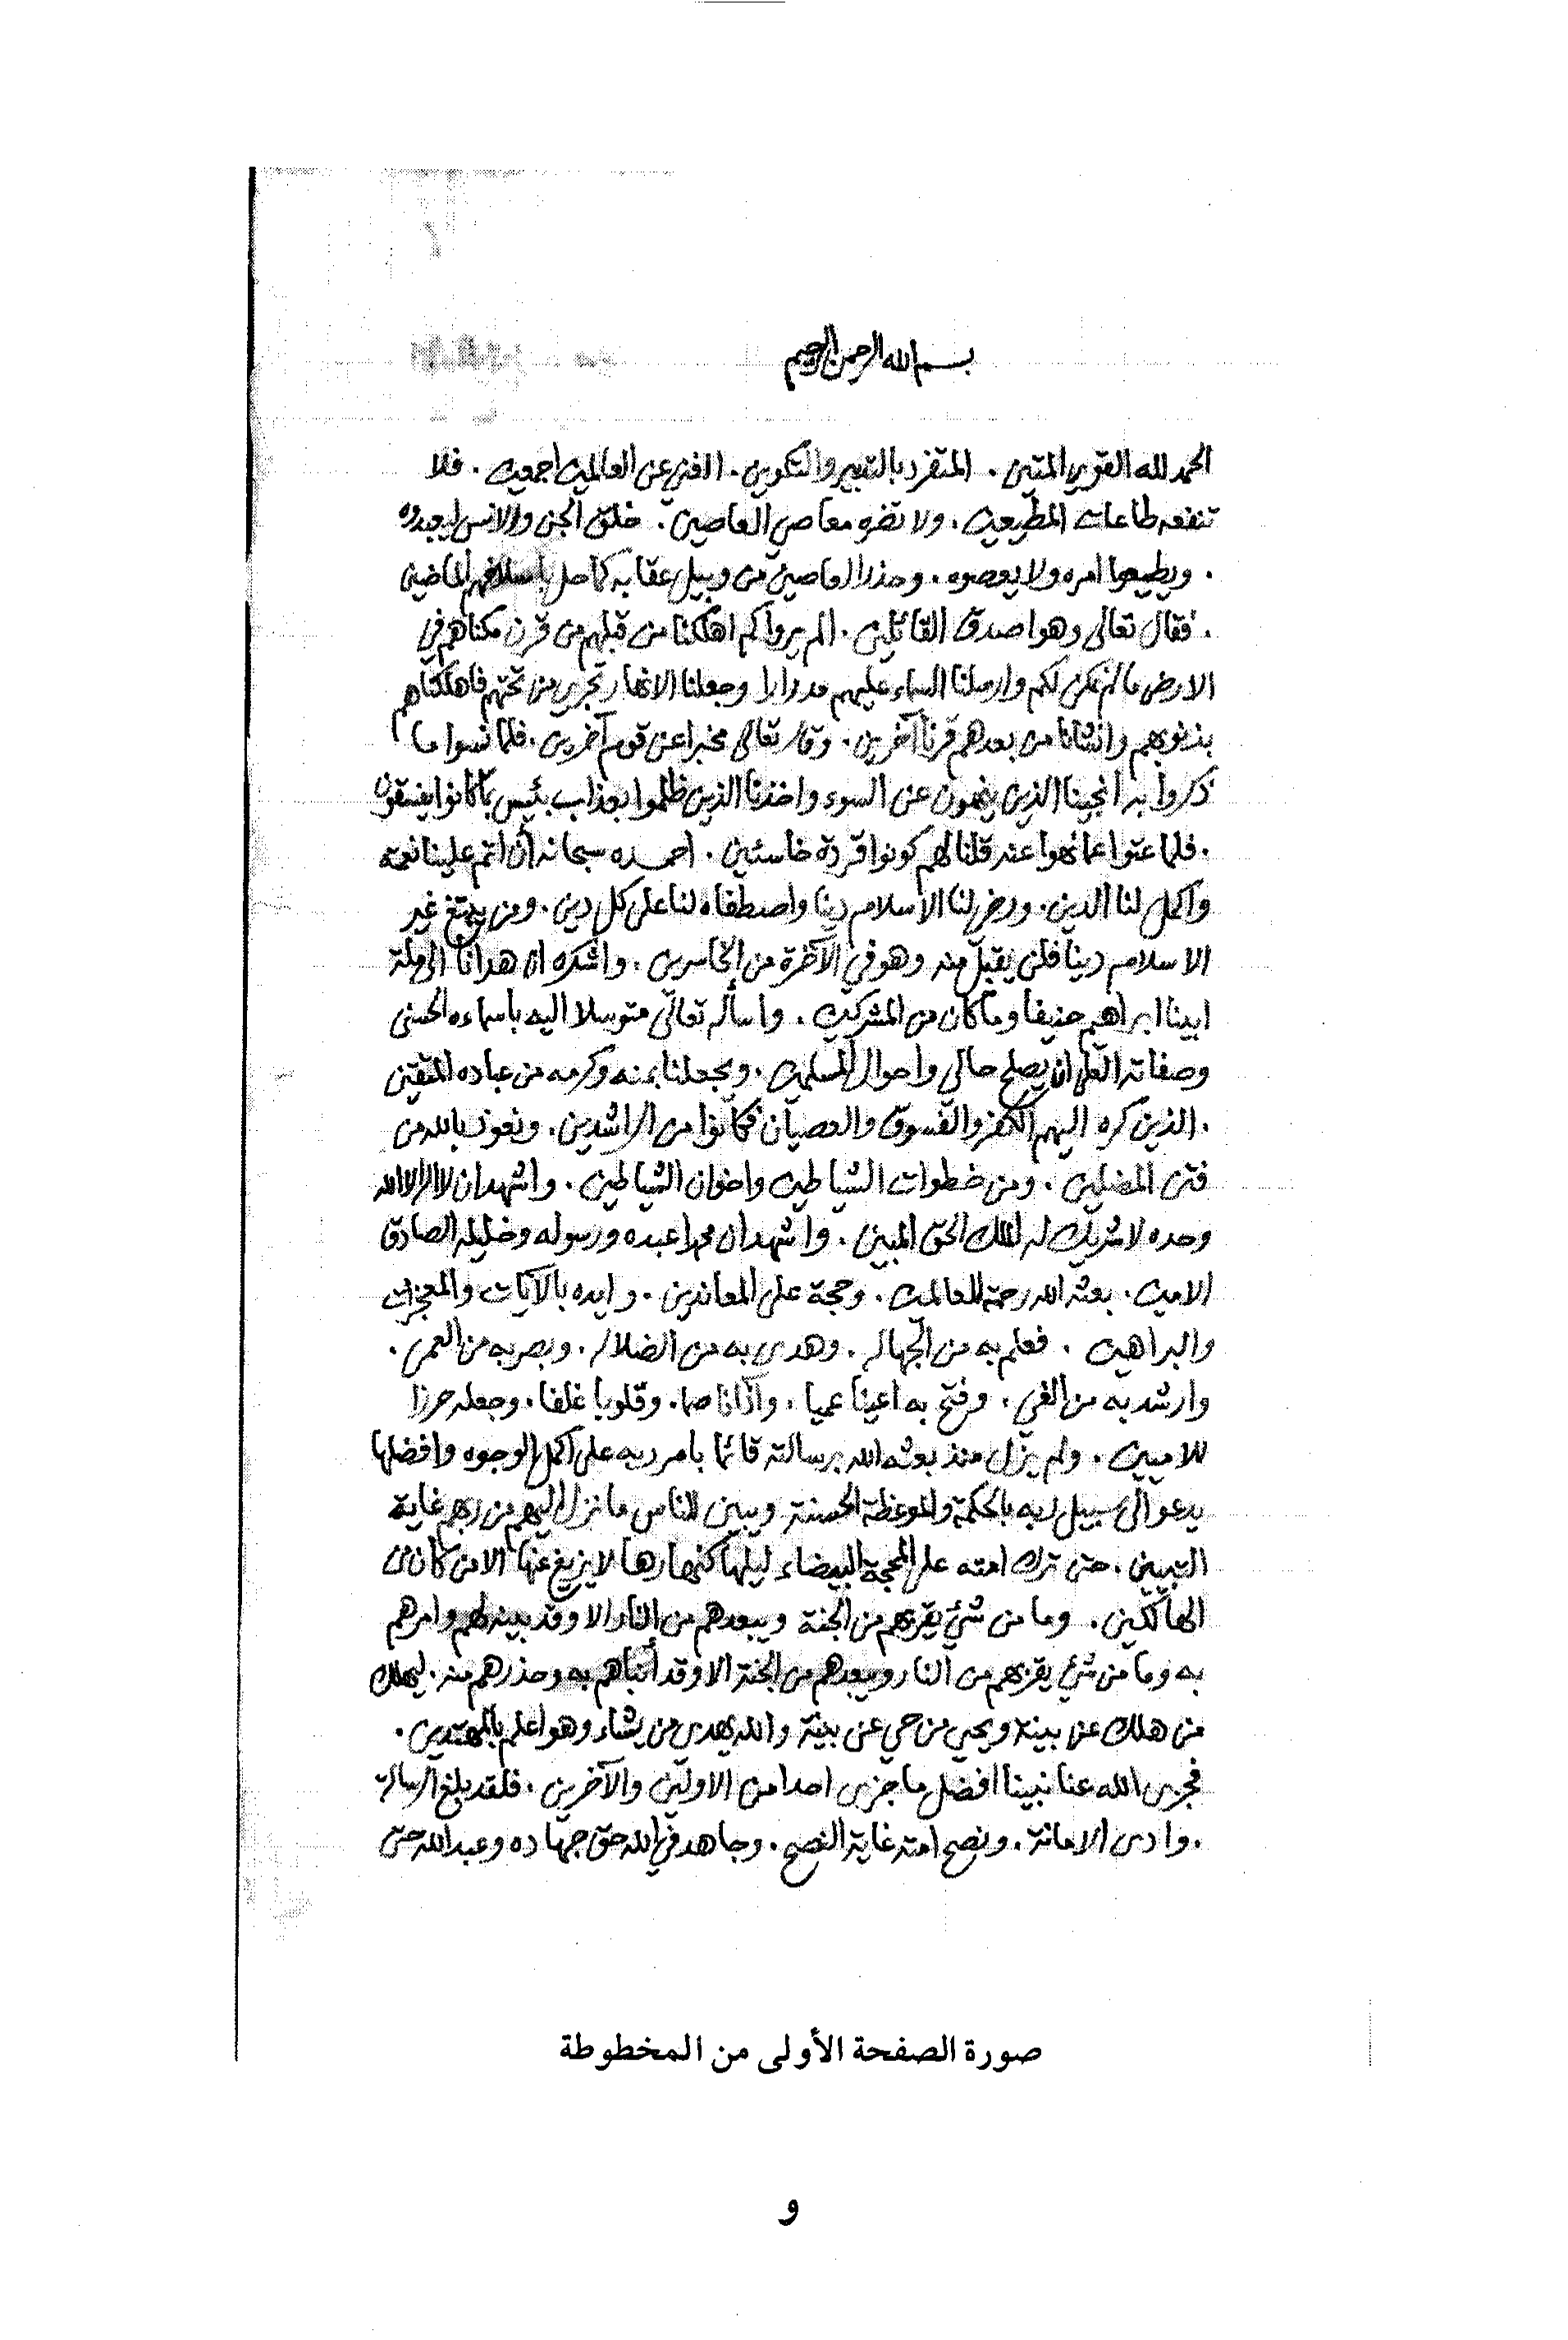 بسم الله الرحمن الرحيم
الحمد لله القوي المتين . المتفرد بالتدبير والتكوين . الغني عن العالمين اجمعين . فلا
تنفعه طاعات المطيعين . ولا تضره معاصي العاصين . خلق الجن والانس ليعبدوه
. ويطيعوا امره ولا يعصوه . وحذر العاصين من وبيل عقابه كما حل باسلافهم الماضين
. فقال تعالى وهو اصدق القائلين . الم يروا كم اهلكنا من قبلهم من قرن مكناهم في
الارض ما لم نمكن لكم وارسلنا السماء عليهم مدرارا وجعلنا الانهار تجري من تحتهم فاهلكناهم
بذنوبهم وانشانا من بعدهم قرنا آخرين . وقال تعالى مخبرا عن قوم آخرين . فلما نسوا ما
ذكروا به انجينا الذين ينهون عن السوء واخذنا الذين ظلموا بعذاب بئيس بما كانوا يفسقون
. فلما عتوا عما نهوا عنه قلنا لهم كونوا قردة خاسئين . احمده سبحانه أن اتم علينا نعمته
واكمل لنا الدين . ورضي لنا الاسلام دينا واصطفاه لنا على كل دين . ومن يبتغ غير
الاسلام دينا فلن يقبل منه وهو في الآخرة من الخاسرين . واشكره ان هدانا الى ملة
ابينا ابراهيم حنيفا وما كان من المشركين . واسأله تعالى متوسلا اليه باسماءه الحسنى
وصفاته العلى ان يصلح حالي واحوال المسلمين . ويجعلنا بمنه وكرمه من عباده المتقين
. الذين كره اليهم الكفر والفسوق والعصيان فكانوا من الراشدين . ونعوذ بالله من
فتن المضلين . ومن خطوات الشياطين واخوان الشياطين . واشهد ان لا اله الا الله
وحده لا شريك له الملك الحق المبين . واشهد ان محمدا عبده ورسوله وخليله الصادق
الامين . بعثه الله رحمة للعالمين . وحجة على المعاندين . وايده بالآيات والمعجزات
والبراهين . فعلم به من الجهالة . وهدى به من الضلالة . وبصر به من العمى .
وارشد به من الغي . وفتح به اعينا عميا . وآذانا صما . وقلوبا غلفا . وجعله حرزا
للاميين . ولم يزل منذ بعثه الله برسالته قائما بامر ربه على اكمل الوجوه وافضلها
يدعو الى سبيل ربه بالحكمة والموعظة الحسنة ويبين للناس ما نزل اليهم من ربهم غاية
التبيين . حتى ترك امته على المحجة البيضاء ليلها كنهارها لا يزيغ عنها الا من كان من
الهالكين . وما من شئ يقربهم من الجنة ويبعدهم من النار الا وقد بينه لهم وامرهم
به وما من شئ يقربهم من النار ويبعدهم من الجنة الا وقد أنباهم به وحذرهم منه . ليهلك
من هلك عن بينة ويحيى من حي عن بينة والله يهدي من يشاء وهو اعلم بالمهتدين .
فجزى الله عنا نبينا افضل ما جزى احدا من الاولين والآخرين . فلقد بلغ الرسالة
. وادى الامانة . ونصح امته غاية النصح . وجاهد في الله حق جهاده وعبد الله حتى
صورة الصفحة الأولى من المخطوطة
و